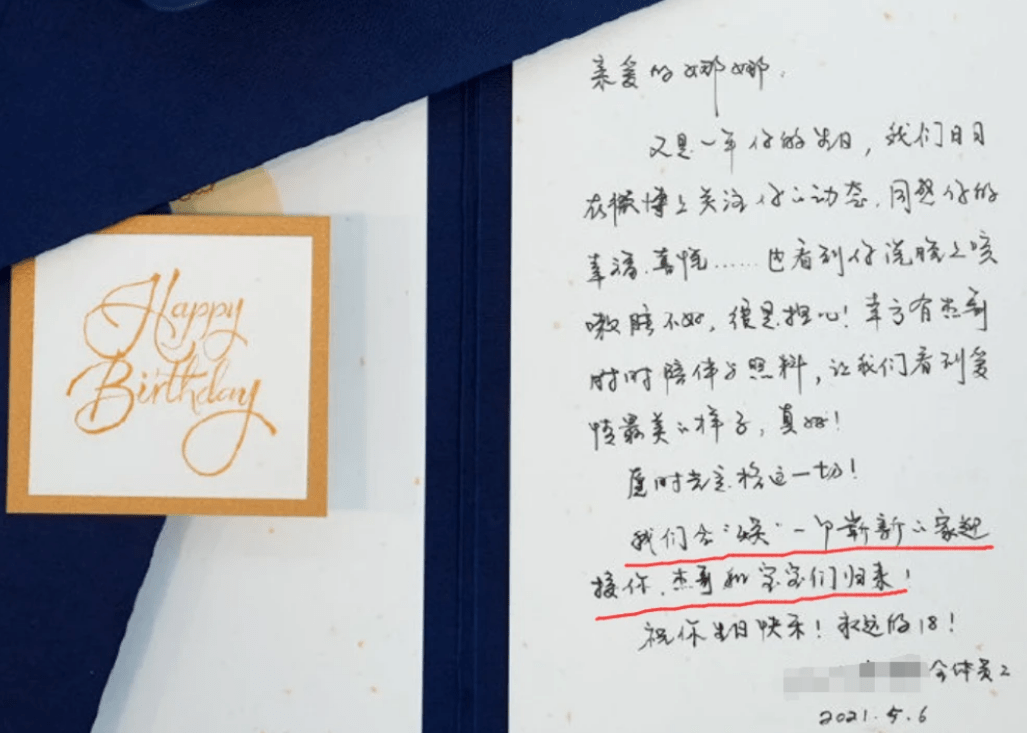 Happy
Birthday
亲爱的娜娜.
又是一年你的生日，我们日日
在微博上关注你的动态.同愿你的
幸福.喜悦……也看到你说晚上咳
嗽睡不好，很是担心！幸亏有杰哥
时时陪伴与照料，让我们看到爱
情最美的样子，真好！
愿时光定格这一切！
我们会“焕”一个崭新的家迎
接你.杰哥和宝宝们归来！
祝你生日快乐！永远的18！
全体员工
2021.5.6